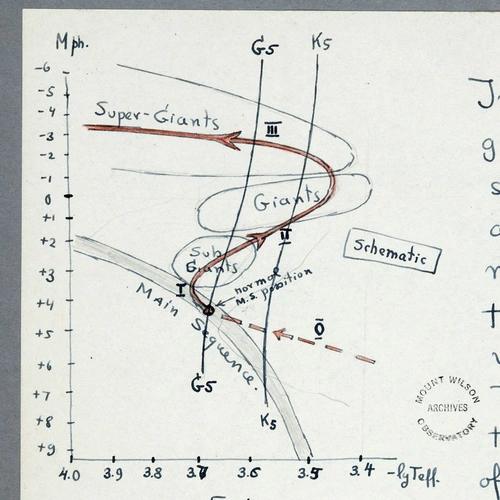 Mph.
G5
K5
-6
-5
-4
-3
-2
-1
0
+1
+2
+3
+4
+5
+6
+7
+8
+9
Super-Giants
III
Giants
II
Sub
Giants
I
normal
M.S. position
Main Sequence.
0
Schematic
MOUNT WILSON
ARCHIVES
OBSERVATORY
G5
K5
4.0 3.9 3.8 3.7 3.6 3.5 3.4 -lg Teff.